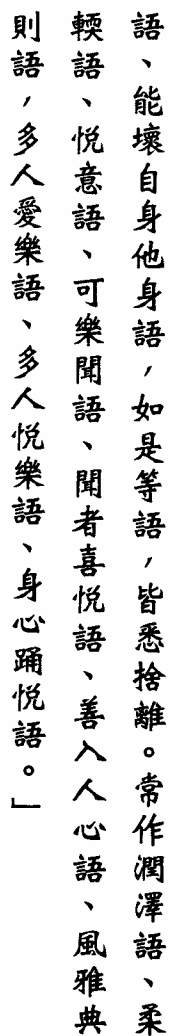 語、能壞自身他身語，如是等語，皆悉捨離。常作潤澤語、柔
輭語、悅意語、可樂聞語、聞者喜悅語、善入人心語、風雅典
則語，多人愛樂語、多人悅樂語、身心踊悅語。」